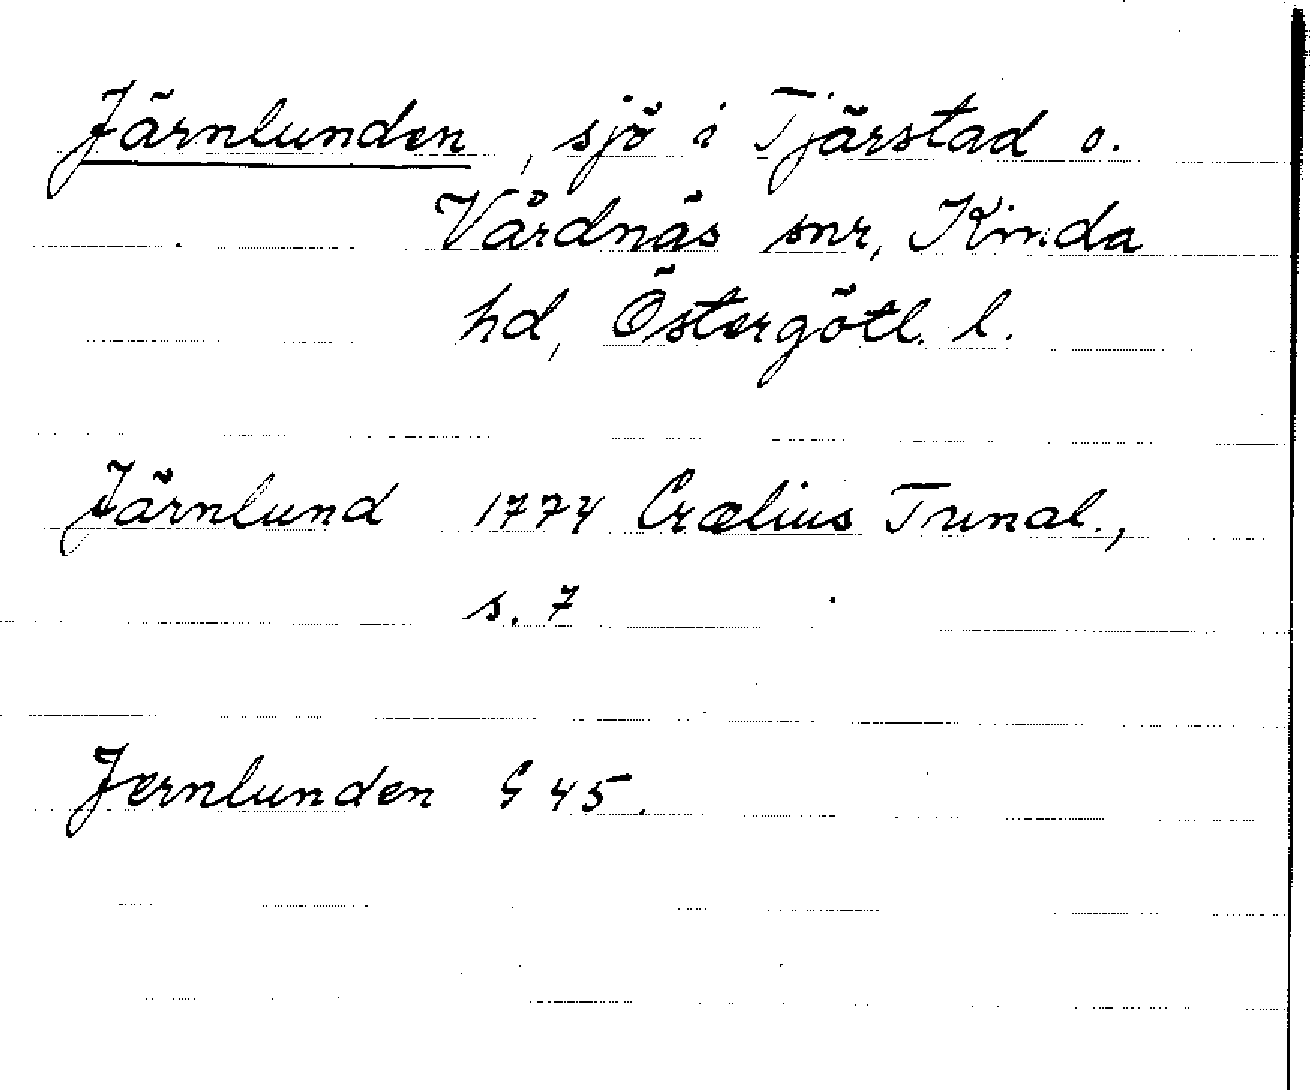 Järnlunden, sjö i Tjärstad o.
Vårdnäs snr, Kinda
hd, Östergötl. l.
Järnlund 1774 Crælius Tunal.,
s. 7
Jernlunden G 45.